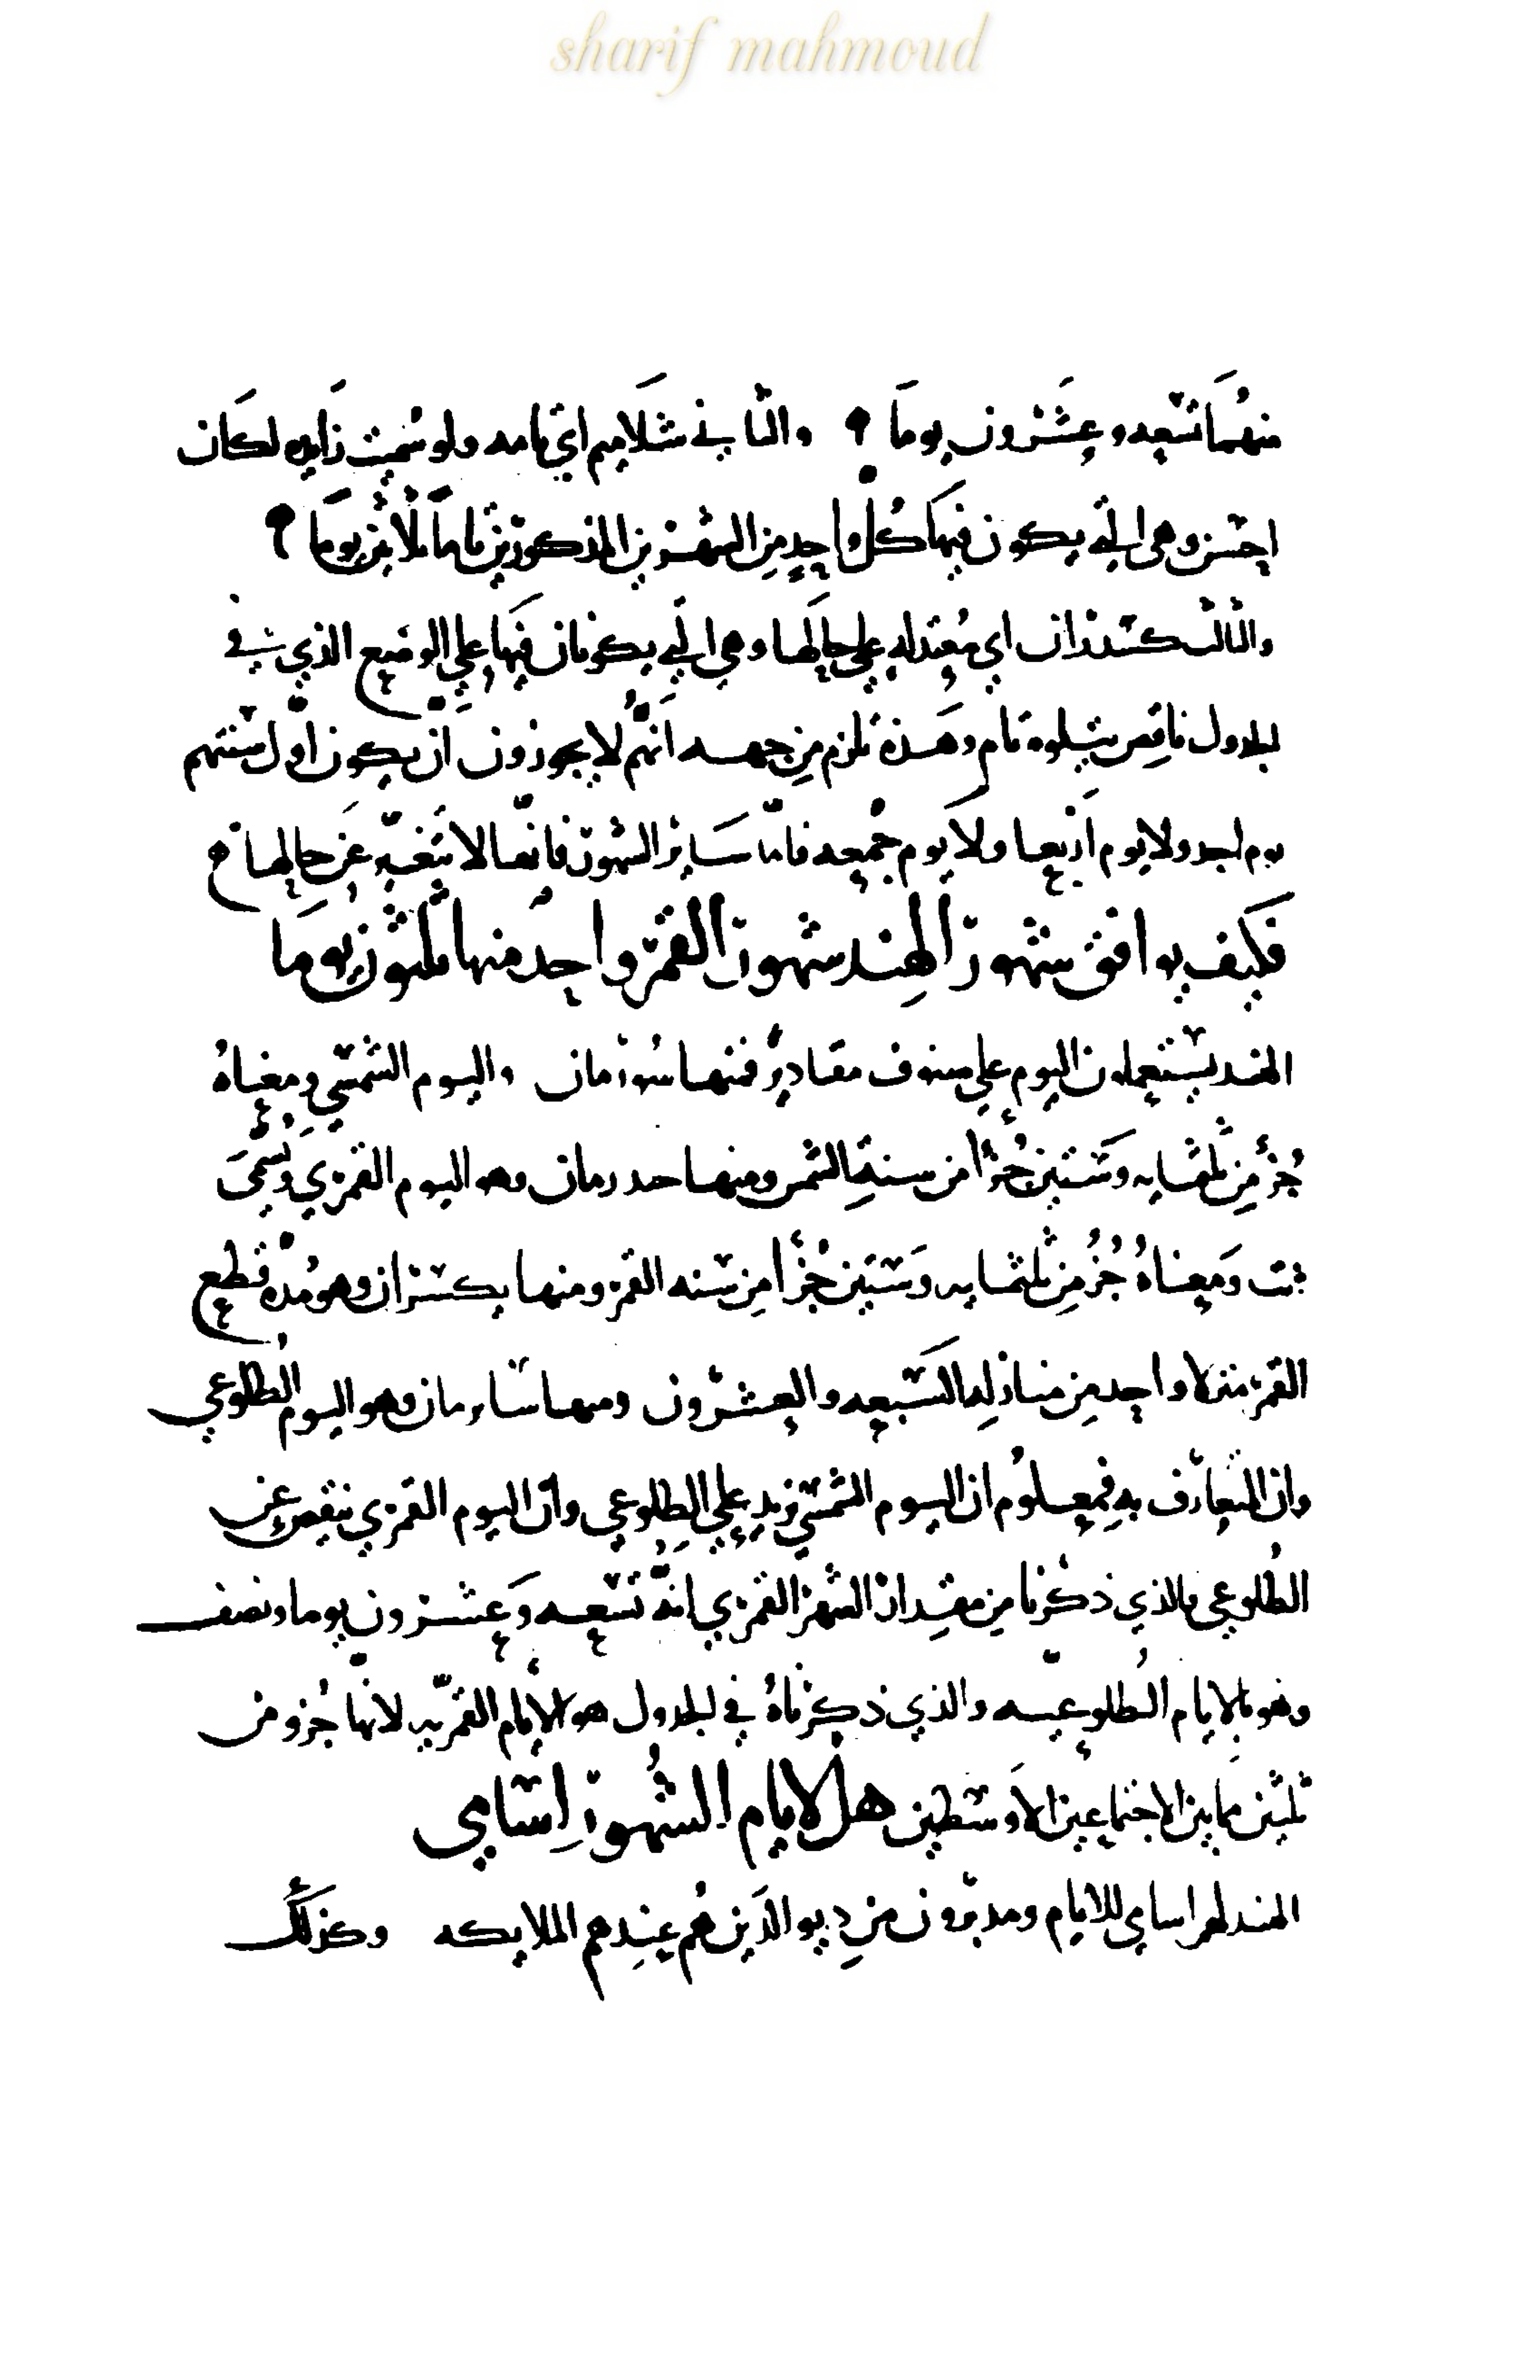 sharif mahmoud
منهُما تسعه وعشرون يوما والثاني شلاميم اي تامه ولو سُميت زايده لكان
احسن وهي التي يكون فيها كُل واحدٍ مِن الشهرين المذكورين تاما ثلاثين يوما
والثالث كسدران اي مُعتدله علي حالها وهي التي يكونان فيها علي الوضع الذي في
الجدول ناقص يتلوه تام وهذه تلزم مِن جهه انهُم لا يجوزون ان يكون اول سنتهم
يوم احد ولا يوم اربعا ولا يوم جُمعه فاما ساير الشهور فانها لا تتغير عن حالها
فكيف يوافق شهور الهند شهور القمر واحدُ منها ثلثون يوما
الهند يستعملون اليوم علي صنوف مقادير فمنها سورمان واليوم الشمسي ومعناهُ
جُزء مِن ثلثمايه وستين جُزءا من سنةِ الشمس ومنها حدرمان وهو اليوم القمري ويُسمى
تت ومعناهُ جُزءُ مِن ثلثمايه وستين جُزءا مِن سنه القمر ومنها نكشتران وهو مُده قطع
القمر منزلا واحد مِن منازلِه السبعه والعشرون ومنها سابرمان وهو اليوم الطلوعي
وان المتعارف بهِ فمعلوُم ان اليوم الشمسي يزيد علي الطلوعي وان اليوم القمري ينقص عن
الطُلوعي بالذي ذكرنا مِن مقدار الشهر القمري انهُ تسعه وعشرون يوما ونصف
وهو بالايام الطُلوعيه والذي ذكرناهُ في الجدول هو الايام القمريه لانها جُزو من
ثلثين مما بين الاجتماعين الاوسطين هل لايام الشُهور اسامي
الهند لهم اسامي للايام ومدبرون من ديو الذين هُم عِندهم الملايكه وكذلك